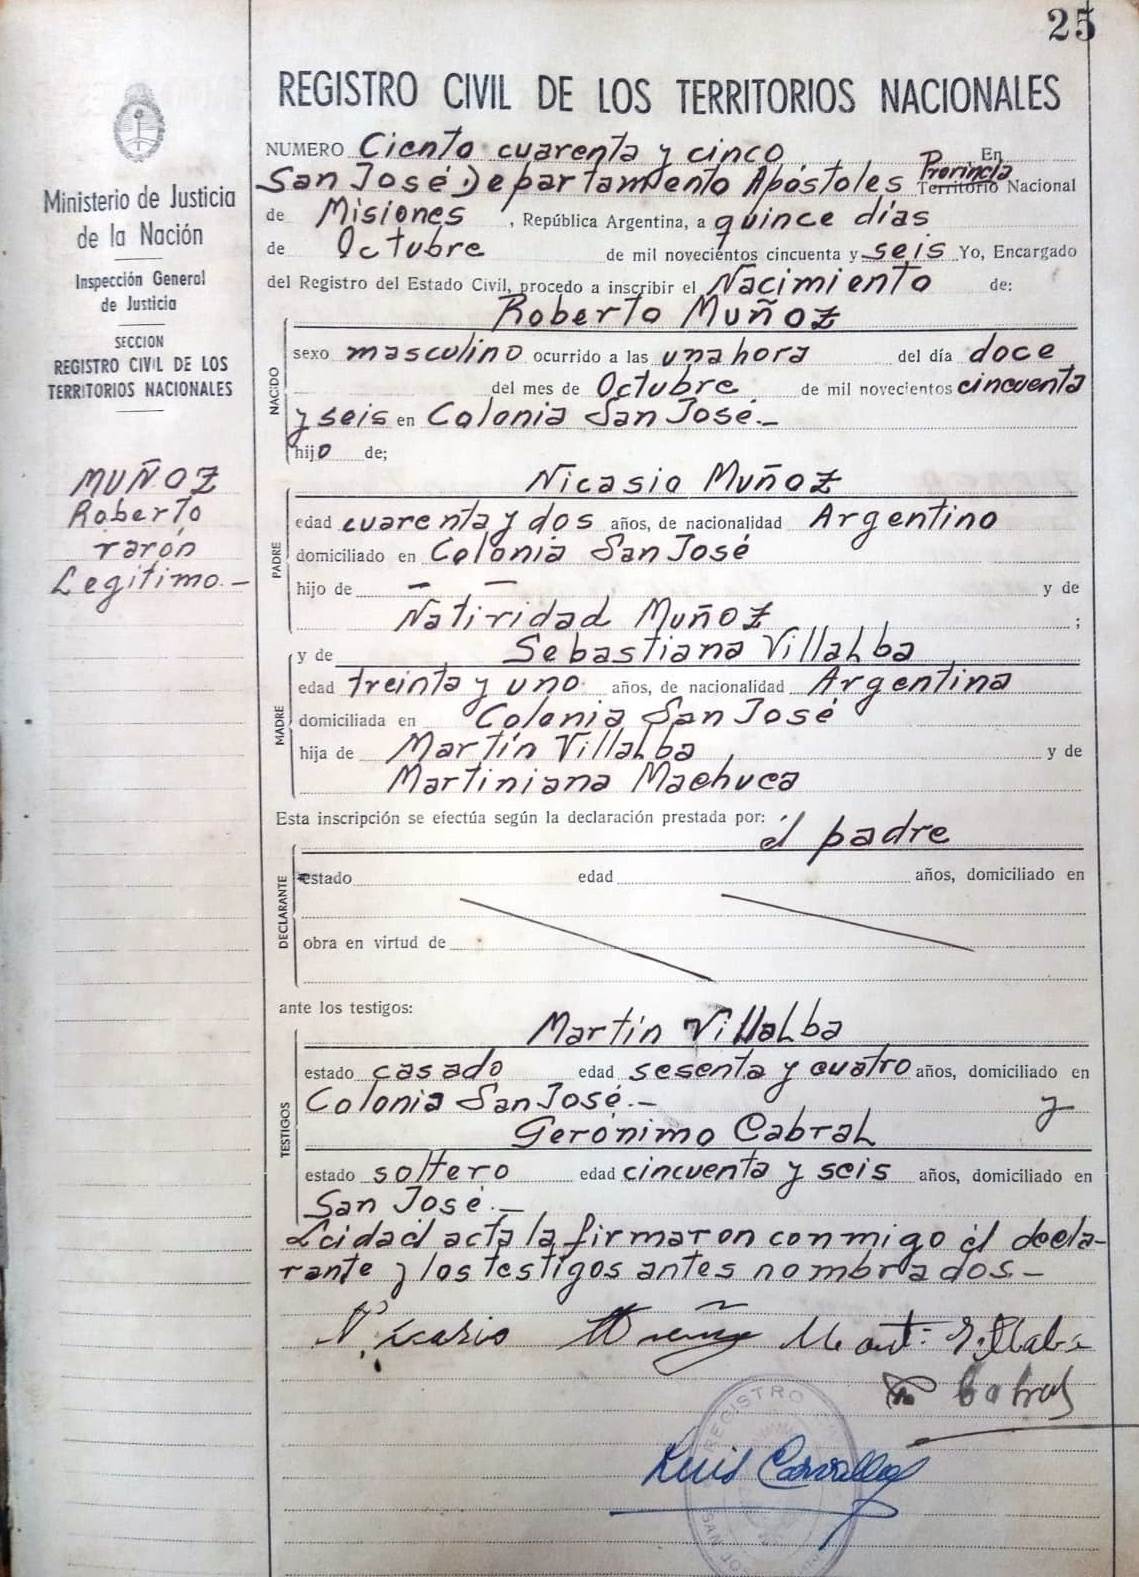 25
REGISTRO CIVIL DE LOS TERRITORIOS NACIONALES
Ministerio de Justicia
de la Nación
Inspección General
de Justicia
SECCION
REGISTRO CIVIL DE LOS
TERRITORIOS NACIONALES
MUÑOZ
Roberto
varón
Legítimo.-
NUMERO Ciento cuarenta y cinco En
San José Departamento Apóstoles Provincia Territorio Nacional
de Misiones, República Argentina, a quince días
de Octubre de mil novecientos cincuenta y seis Yo, Encargado
del Registro del Estado Civil, procedo a inscribir el Nacimiento de:
Roberto Muñoz
NACIDO
sexo masculino ocurrido a las una hora del día doce
del mes de Octubre de mil novecientos cincuenta
y seis en Colonia San José.-
hijo de;
Nicasio Muñoz
PADRE
edad cuarenta y dos años, de nacionalidad Argentino
domiciliado en Colonia San José
hijo de — — y de
Natividad Muñoz ;
y de Sebastiana Villalba
MADRE
edad treinta y uno años, de nacionalidad Argentina
domiciliada en Colonia San José
hija de Martín Villalba y de
Martiniana Machuca
Esta inscripción se efectúa según la declaración prestada por:
él padre
DECLARANTE
estado edad años, domiciliado en
obra en virtud de
ante los testigos:
Martín Villalba
TESTIGOS
estado casado edad sesenta y cuatro años, domiciliado en
Colonia San José.- y
Gerónimo Cabral
estado soltero edad cincuenta y seis años, domiciliado en
San José.-
Leidad acta la firmaron conmigo él decla-
rante y los testigos antes nombrados.-
Nicasio Muñoz Mart: Villalba
Cabral
REGISTRO
Luis Carvallo
SAN JO